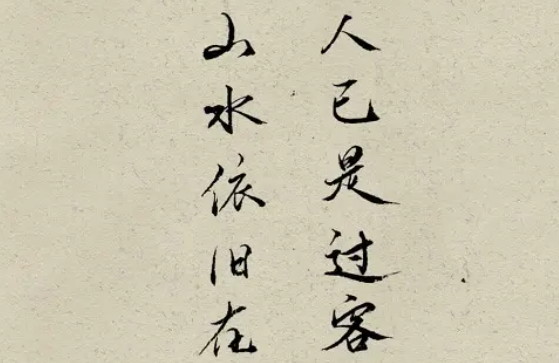 人已是过客
山水依旧在